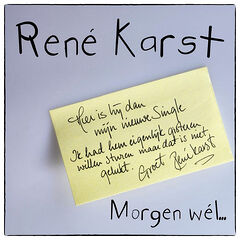 René Karst
Hier is hij dan
mijn nieuwe single
Ik had hem eigenlijk gisteren
willen sturen maar dat is niet
gelukt. Groet René Karst
Morgen wél...